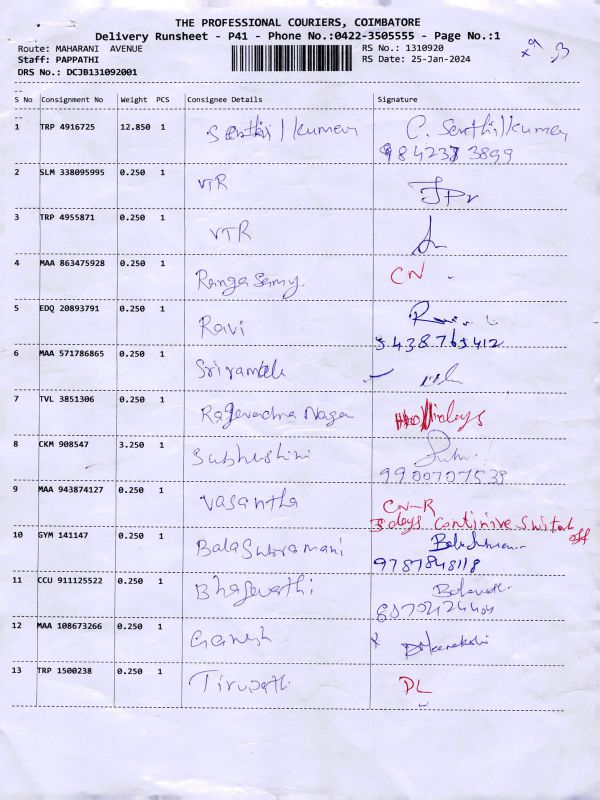 THE PROFESSIONAL COURIERS, COIMBATORE
Delivery Runsheet - P41 - Phone No.:0422-3505555 - Page No.:1
Route: MAHARANI AVENUE RS No.: 1310920
Staff: PAPPATHI RS Date: 25-Jan-2024
DRS No.: DCJB131092001
S No Consignment No Weight PCS Consignee Details Signature
1 TRP 4916725 12.850 1 Senthilkumar C. Senthilkumar
2 SLM 338095995 0.250 1 VTR
3 TRP 4955871 0.250 1 VTR
4 MAA 863475928 0.250 1 Rangasamy. CN
5 EDQ 20893791 0.250 1 Ravi
6 MAA 571786865 0.250 1
7 TVL 3851306 0.250 1 Naga Holidays
8 CKM 908547 3.250 1 Subhushini
9 MAA 943874127 0.250 1 Vasantha CN-R
3 days Continive Switch off
10 GYM 141147 0.250 1 Balasubramani
9787848118
11 CCU 911125522 0.250 1 Bhagevathi
12 MAA 108673266 0.250 1 Ganesh
13 TRP 1500238 0.250 1 Tirupathi DL